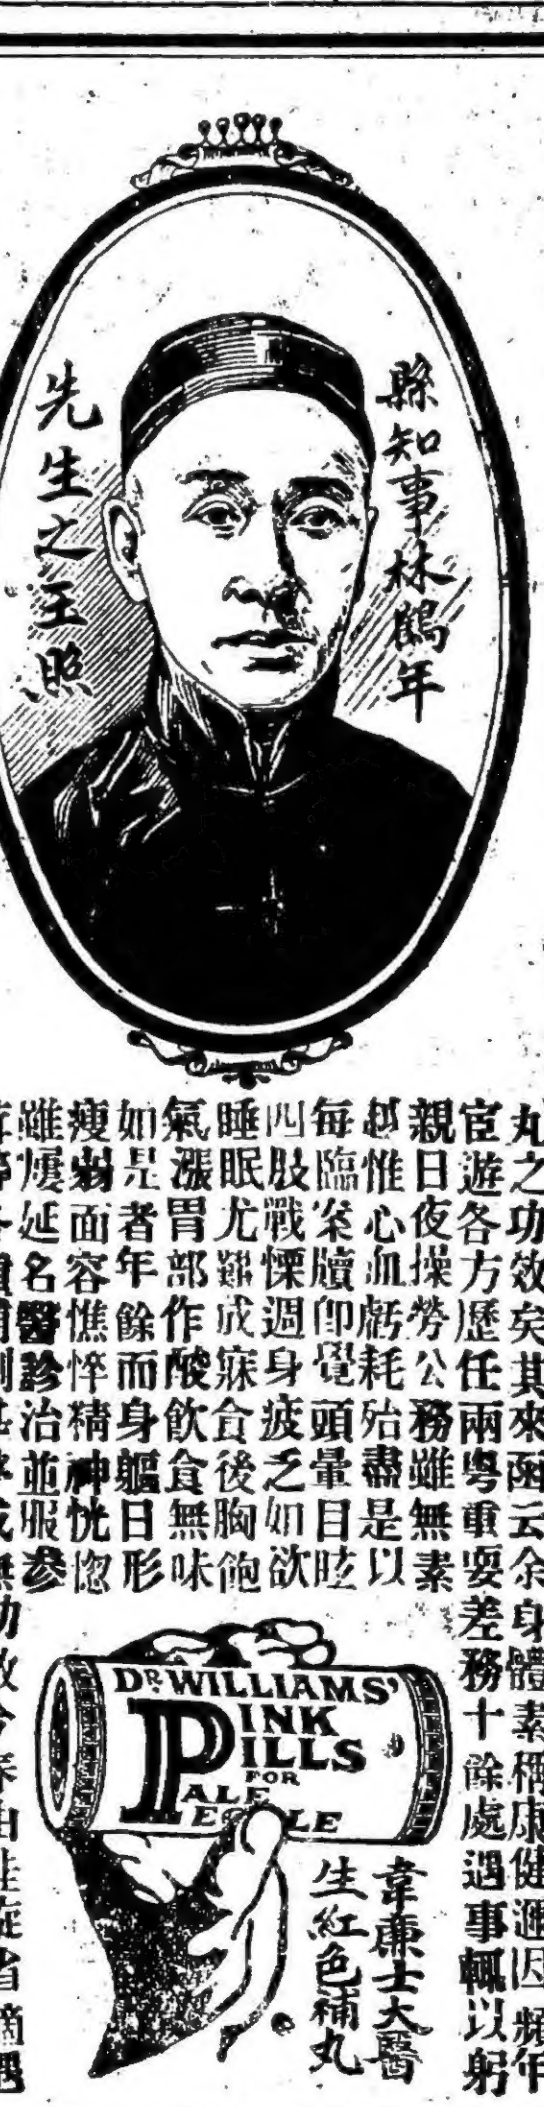 縣知事林鶴年
先生之玉照
丸之功效矣其來函云余身體素稱康健邇因頻年
宦遊各方歷任兩粵重要差務十餘處遇事輒以躬
親日夜操勞公務雖無素
越惟心血虧耗殆盡是以
每臨案牘卽覺頭暈目眩
四肢戰慄週身疲乏如欲
睡眠尤難成寐食後胸飽
氣漲胃部作酸飲食無味
如是者年餘而身軀日形
瘦弱面容憔悴精神恍惚
雖屢延名醫診治並服參
DR. WILLIAMS'
PINK
PILLS
FOR
PALE
PEOPLE
韋廉士大醫
生紅色補丸